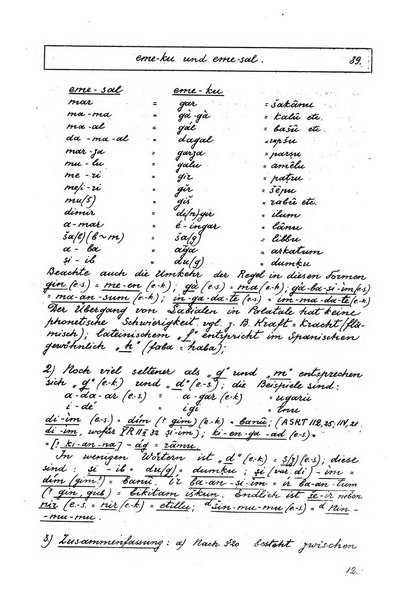 eme-ku und eme-sal. 89.
eme-sal eme-ku
mar = gar = šakânu
ma-ma = gà-gà = kalû etc.
ma-al = gál = bašû etc.
da-ma-al = dagal =
mar-za = garza = parṣu
mu-lu = galu = amêlu
me-ri = gír = paṭru
me/i-ri = gìr = šêpu
mu(š) = giš = rabû etc.
dimir = di(n)gir = ilum
a-mar = é-ingar = lânu
ša(b)(b~m) = ša(g) = libbu
a-ba = aga = arkatum
ṣi-ib = du(g) = dumḳu
Beachte auch die Umkehr der Regel in diesen Formen
gin (e-s) = me-en (e-k); gà (e-s) = ma (e-k); gà-ba-si-im (e-s)
= ma-an-sum (e-k); in-ga-da-te (e-s) = im-ma-da-te (e-k)
Der Übergang von Labialen in Palatale hat keine
phonetische Schwierigkeit vgl. z. B. Kraft = Kracht (flä-
misch); lateinischem "f" entspricht im Spanischen
gewöhnlich "h" (faba = haba);
2) Noch viel seltener als "g" und "m" entsprechen
sich "g" (e-k) und "d" (e-s); die Beispiele sind:
a-da-ar (e-s) = a-gar (e-k) = ugaru
i-dé = igi = înu
di-im (e-s) = dím (? gim) (e-k) = banû; (ASKT 112,25; 114,21
di-im, wofür IV R 11 II 32 ṣi-im); ki-en-ga-ad (e-s) =
= [? ki-an-na] - ág = râmu.
In wenigen Wörtern ist "d" (e-k) = š/ṣ (e-s); diese
sind: ṣi-ib = du(g) = dumḳu; ṣi (var. di)-im =
dím (gim?) = banû; ír ba-an-ṣi-im = ír ba-an-tum
(? gin, gub) = bikîtam iškun. Endlich ist še-ir neben
nir (e-s = nir (e-k) = etillu; ᵈ Šin-mu-mu (e-s) = ᵈ Nin-
-mu-mu.
3) Zusammenfassung: a) Nach 520 besteht zwischen
12.